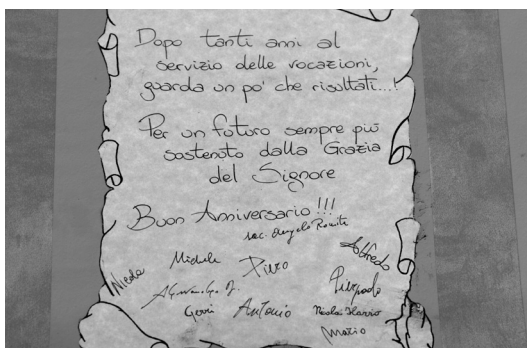 Dopo tanti anni al
servizio delle vocazioni,
guarda un po' che risultati...!
Per un futuro sempre più
sostenuto dalla Grazia
del Signore
Buon Anniversario!!!
sac. Angelo
Alfredo
Michele
Piero
Nicola
Pierpaolo
Gerri
Antonio
Nicola Ilario
Mario